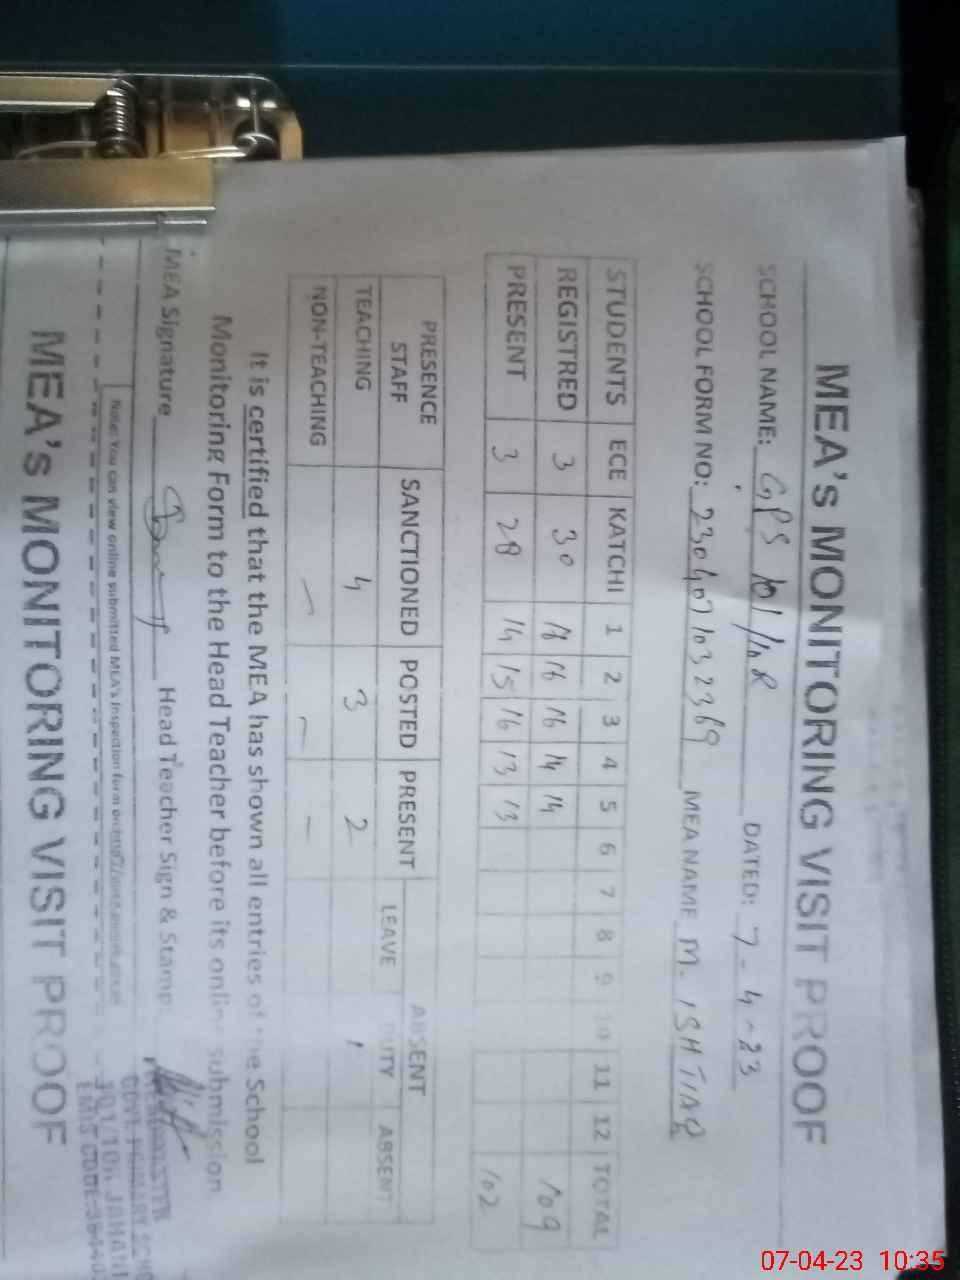 MEA's MONITORING VISIT PROOF
SCHOOL NAME: GPS 101/10R DATED: 7-4-23
SCHOOL FORM NO: 23040710323 MEA NAME M. ISHTIAQ
STUDENTS ECE KATCHI 1 2 3 4 5 6 7 8 9 10 11 12 TOTAL
REGISTRED 3 30 16 16 14 14 109
PRESENT 3 28 14 15 16 13 13 102
PRESENCE STAFF SANCTIONED POSTED PRESENT ABSENT
LEAVE DUTY ABSENT
TEACHING 4 3 2 1
NON-TEACHING — — —
It is certified that the MEA has shown all entries of the School
Monitoring Form to the Head Teacher before its online submission
MEA Signature Head Teacher Sign & Stamp
HEADMASTER
GOVT. PRIMARY SCHO
101/10R JAHANI
EMIS CODE
Note: You can view online submitted MEA's Inspection form on
MEA's MONITORING VISIT PROOF
07-04-23 10:35